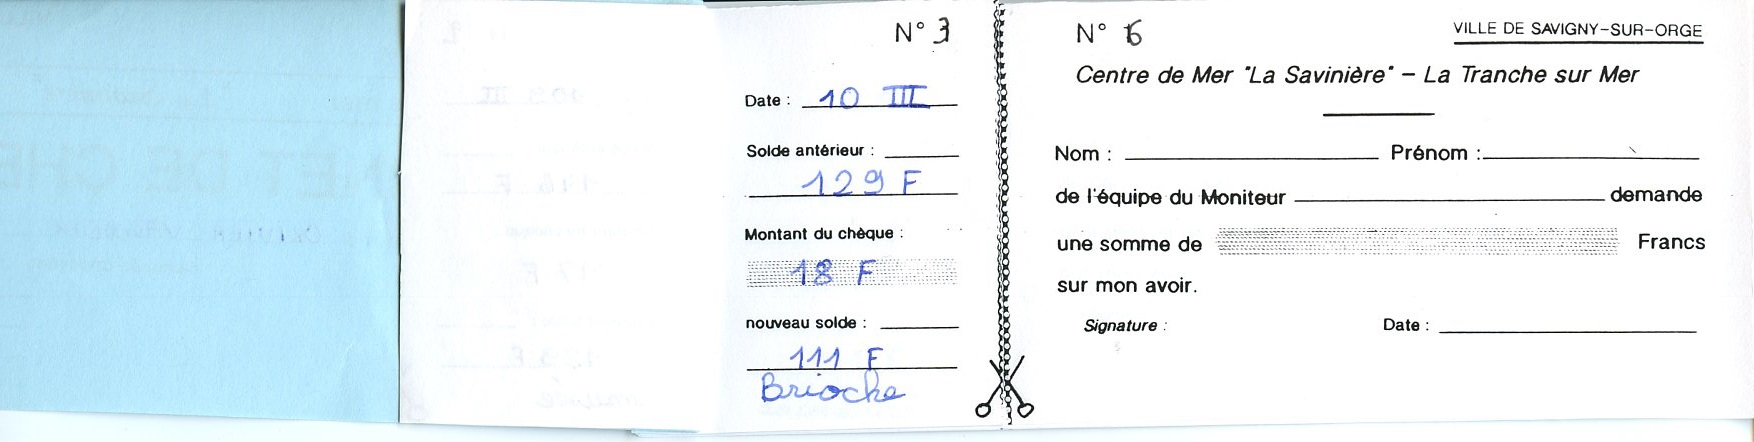 N° 3
Date : 10 III
Solde antérieur :
129 F
Montant du chèque :
18 F
nouveau solde :
111 F
Brioche
N° 6
VILLE DE SAVIGNY-SUR-ORGE
Centre de Mer "La Savinière" - La Tranche sur Mer
Nom : Prénom :
de l'équipe du Moniteur demande
une somme de Francs
sur mon avoir.
Signature : Date :